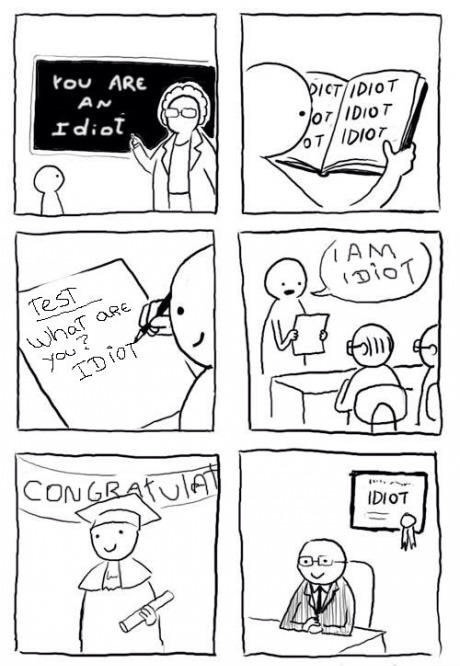 YOU ARE
AN
Idiot
DICT IDIOT
OT IDIOT
OT IDIOT
TEST
WHAT ARE
YOU?
IDIOT
I AM
IDIOT
CONGRATULAT
IDIOT